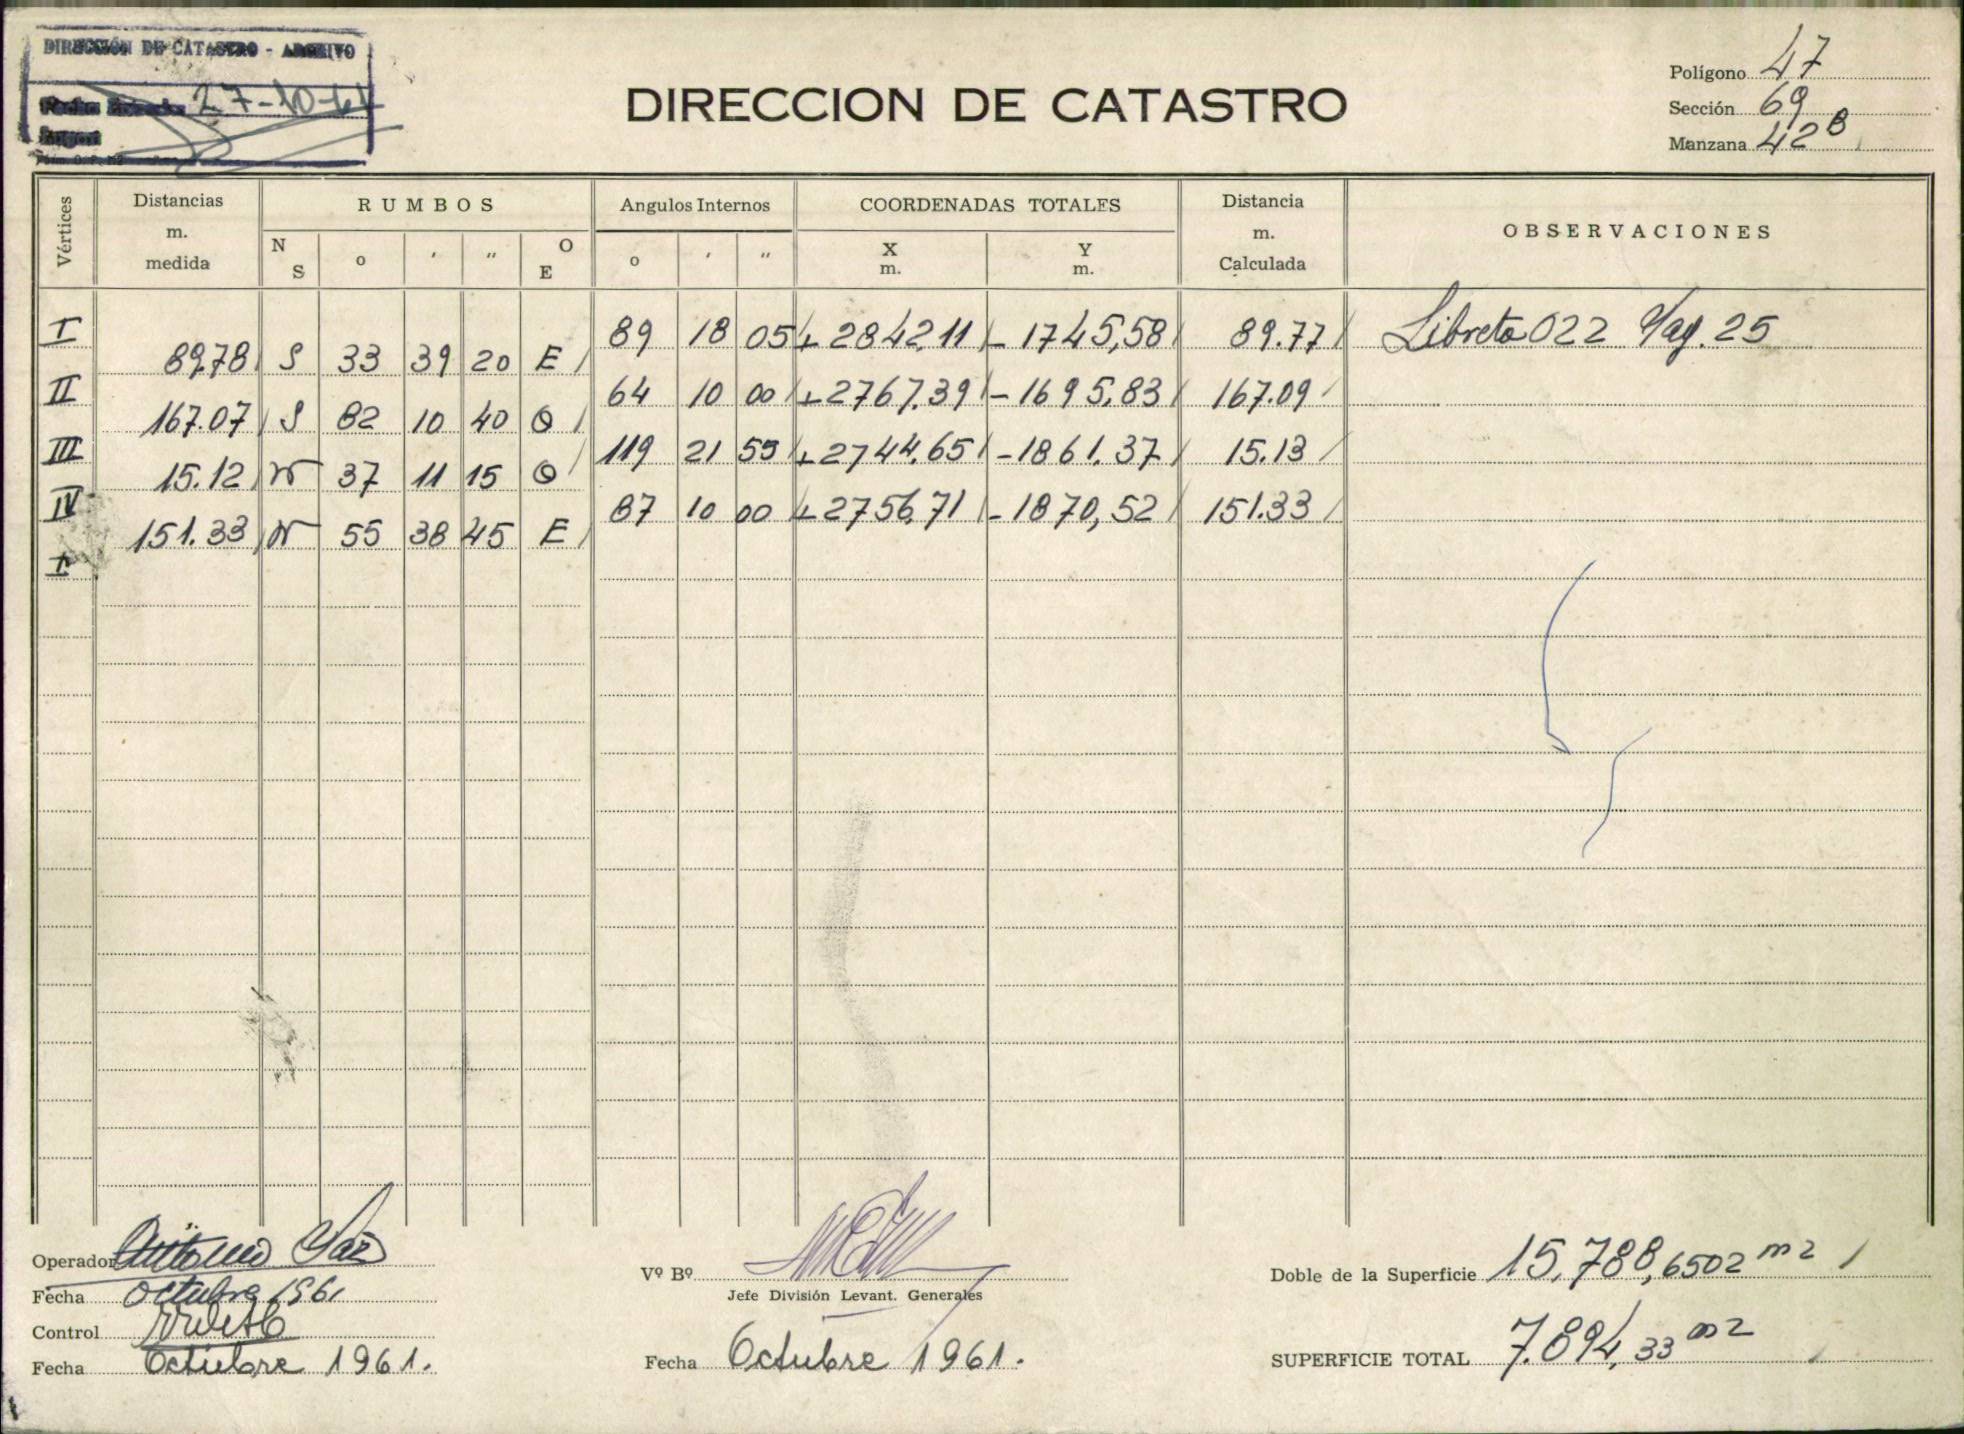 DIRECCIÓN DE CATASTRO - ARCHIVO
27-10-61
DIRECCION DE CATASTRO
Polígono 47
Sección 69
Manzana 42 B
Vértices
Distancias m. medida
RUMBOS
N S o ' " O E
Angulos Internos
o ' "
COORDENADAS TOTALES
X m. Y m.
Distancia m. Calculada
OBSERVACIONES
I 89 18 05 + 2842,11 - 1745,58 89.77 Libreta 022 Pag. 25
89,78 S 33 39 20 E
II 64 10 00 + 2767.39 - 1695,83 167.09
167.07 S 82 10 40 O
III 119 21 55 + 2744.65 - 1861.37 15.13
15.12 N 37 11 15 O
IV 87 10 00 + 2756,71 - 1870,52 151.33
151.33 N 55 38 45 E
I
Operador Antonio
Fecha Octubre 1961
Control
Fecha Octubre 1961.
Vº Bº
Jefe División Levant. Generales
Fecha Octubre 1961.
Doble de la Superficie 15.788,6502 m2
SUPERFICIE TOTAL 7.894,33 m2